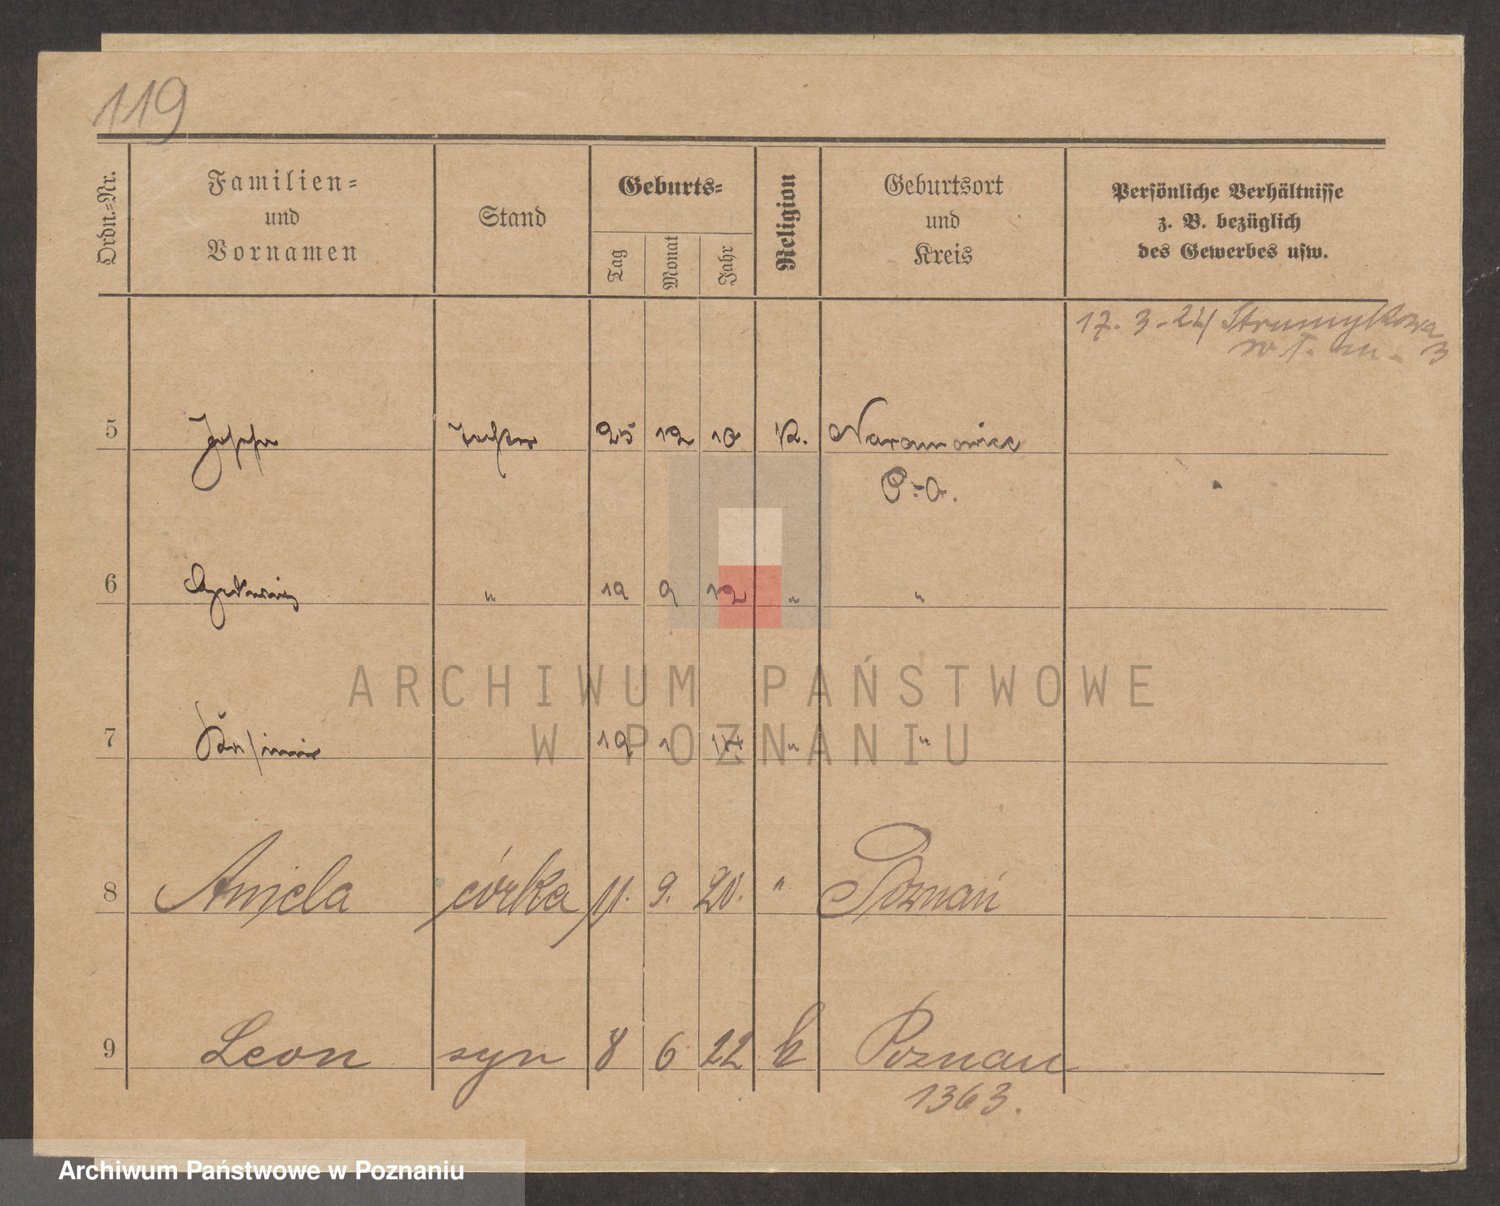 119
Ordn.-Nr.
Familien-
und
Vornamen
Stand
Geburts-
Tag
Monat
Jahr
Religion
Geburtsort
und
Kreis
Persönliche Verhältnisse
z. B. bezüglich
des Gewerbes usw.
17. 3. 24 Strumykowa
3
5 Josefa Tochter 25 12 10 K. Naramowice
P.-O.
6 Hedwig " 19 9 12 " "
7 19 1 14 " "
8 Aniela córka 11. 9. 20. " Poznań
9 Leon syn 8 6 22 k Poznań
1363.
ARCHIWUM PAŃSTWOWE
W POZNANIU
Archiwum Państwowe w Poznaniu